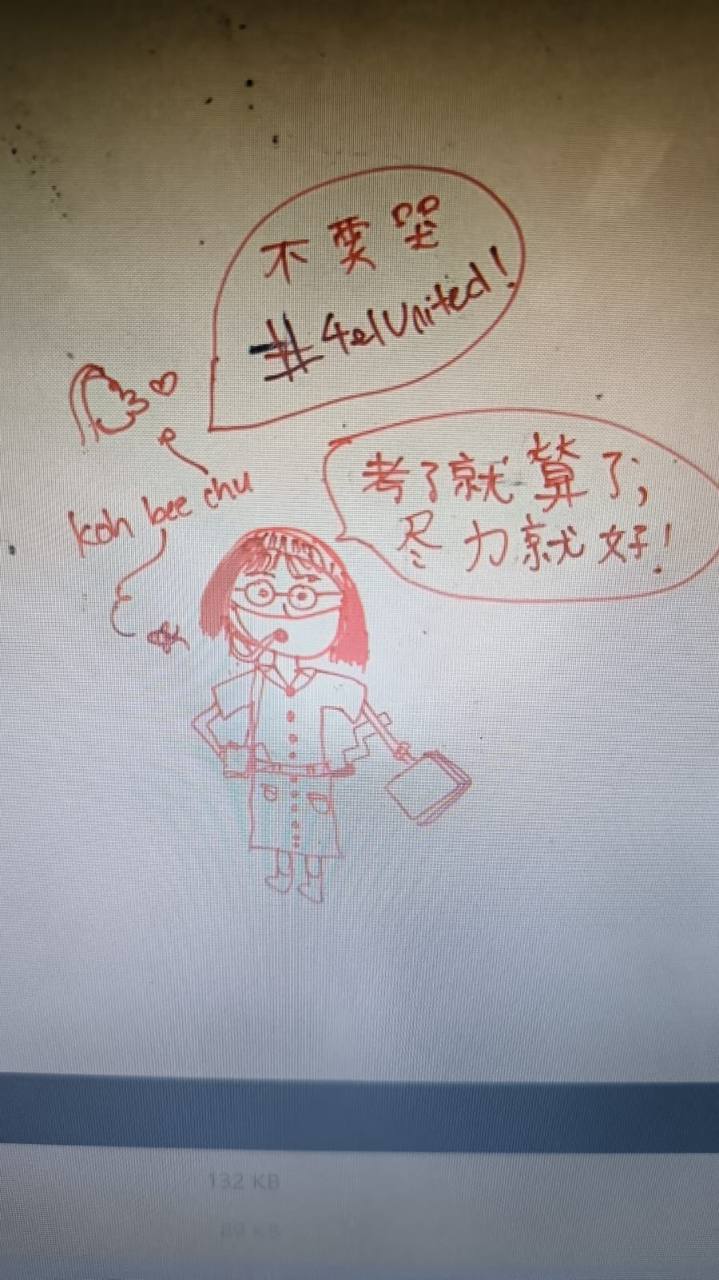 不要哭
#4e1United!
koh bee chu
考了就算了;
尽力就好!
132 KB
89 KB